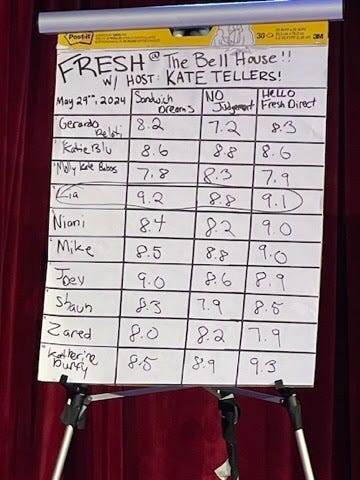 Post-it
30
3M
FRESH @ The Bell House!!
w/ HOST: KATE TELLERS!
May 29th, 2024 Sandwich Dreams NO Judgement HELLO Fresh Direct
Gerardo 8.2 7.2 8.3
Katie Blu 8.6 8.8 8.6
Molly Kate Babos 7.8 8.3 7.9
Lia 9.2 8.8 9.1
Niani 8.4 8.2 9.0
Mike 8.5 8.8 9.0
Joey 9.0 8.6 8.9
Shaun 8.3 7.9 8.5
Zared 8.0 8.2 7.9
Katherine Duffy 8.5 8.9 9.3